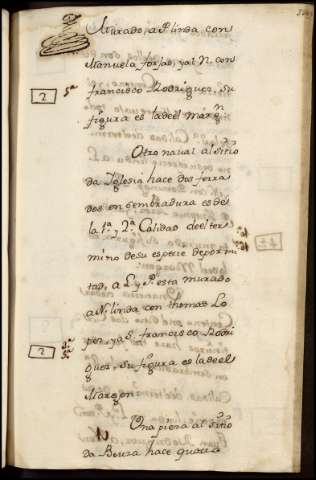 Murado, a P. linda con
Manuela forjas, yal N. con
2 5ª francisco Rodriguez, su
figura es la del margn
Otro naval al sitio
da Iglesia hace dos ferra
dos en sembradura es de
la 1ª y 2ª Calidad del ter
mino de su especie depormi
tad, a L. y P. esta murado
a N. linda con thomas Lo
2 pez, ya S. francisco Rodri
guez, su figura es la del
Margen
Una pieza al sitio
da Bouza hace quatro